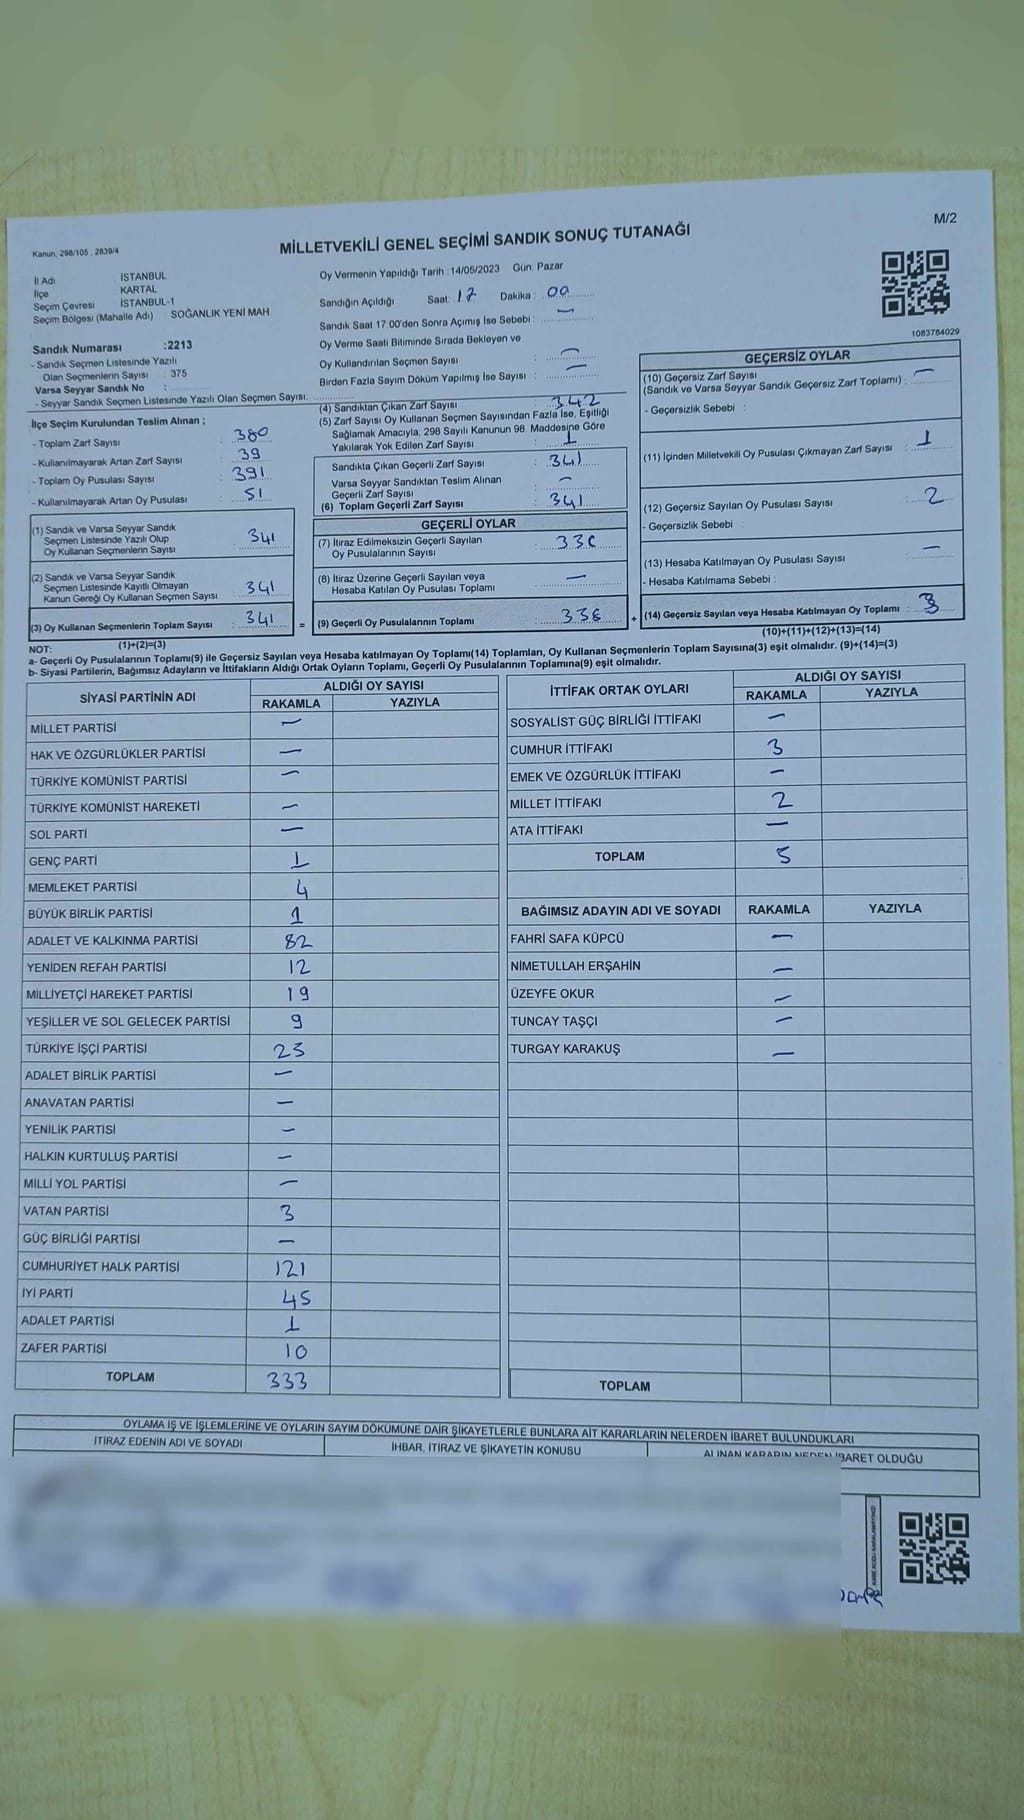 M/2
Kanun, 298/105 , 2839/4
MİLLETVEKİLİ GENEL SEÇİMİ SANDIK SONUÇ TUTANAĞI
İl Adı İSTANBUL
İlçe KARTAL
Seçim Çevresi İSTANBUL-1
Seçim Bölgesi (Mahalle Adı) SOĞANLIK YENİ MAH.
Oy Vermenin Yapıldığı Tarih :14/05/2023 Gün: Pazar
Sandığın Açıldığı Saat: 17 Dakika : 00
Sandık Saat 17:00'den Sonra Açımış İse Sebebi : —
Oy Verme Saati Bitiminde Sırada Bekleyen ve
Oy Kullandırılan Seçmen Sayısı : —
Birden Fazla Sayım Döküm Yapılmış İse Sayısı : —
1083784029
Sandık Numarası :2213
- Sandık Seçmen Listesinde Yazılı
Olan Seçmenlerin Sayısı : 375
Varsa Seyyar Sandık No :
- Seyyar Sandık Seçmen Listesinde Yazılı Olan Seçmen Sayısı:
İlçe Seçim Kurulundan Teslim Alınan ;
- Toplam Zarf Sayısı : 380
- Kullanılmayarak Artan Zarf Sayısı : 39
- Toplam Oy Pusulası Sayısı : 391
- Kullanılmayarak Artan Oy Pusulası : 51
(1) Sandık ve Varsa Seyyar Sandık
Seçmen Listesinde Yazılı Olup
Oy Kullanan Seçmenlerin Sayısı : 341
(2) Sandık ve Varsa Seyyar Sandık
Seçmen Listesinde Kayıtlı Olmayan
Kanun Gereği Oy Kullanan Seçmen Sayısı : 341
(3) Oy Kullanan Seçmenlerin Toplam Sayısı : 341
(1)+(2)=(3)
(4) Sandıktan Çıkan Zarf Sayısı : 342
(5) Zarf Sayısı Oy Kullanan Seçmen Sayısından Fazla İse, Eşitliği
Sağlamak Amacıyla, 298 Sayılı Kanunun 98. Maddesine Göre
Yakılarak Yok Edilen Zarf Sayısı : 1
Sandıkta Çıkan Geçerli Zarf Sayısı : 341
Varsa Seyyar Sandıktan Teslim Alınan
Geçerli Zarf Sayısı : —
(6) Toplam Geçerli Zarf Sayısı : 341
GEÇERLİ OYLAR
(7) İtiraz Edilmeksizin Geçerli Sayılan
Oy Pusulalarının Sayısı :
(8) İtiraz Üzerine Geçerli Sayılan veya
Hesaba Katılan Oy Pusulası Toplamı : —
= (9) Geçerli Oy Pusulalarının Toplamı :
GEÇERSİZ OYLAR
(10) Geçersiz Zarf Sayısı
(Sandık ve Varsa Seyyar Sandık Geçersiz Zarf Toplamı) : —
- Geçersizlik Sebebi :
(11) İçinden Milletvekili Oy Pusulası Çıkmayan Zarf Sayısı : 1
(12) Geçersiz Sayılan Oy Pusulası Sayısı : 2
- Geçersizlik Sebebi :
(13) Hesaba Katılmayan Oy Pusulası Sayısı : —
- Hesaba Katılmama Sebebi :
+ (14) Geçersiz Sayılan veya Hesaba Katılmayan Oy Toplamı : 3
(10)+(11)+(12)+(13)=(14)
NOT:
a- Geçerli Oy Pusulalarının Toplamı(9) ile Geçersiz Sayılan veya Hesaba katılmayan Oy Toplamı(14) Toplamları, Oy Kullanan Seçmenlerin Toplam Sayısına(3) eşit olmalıdır. (9)+(14)=(3)
b- Siyasi Partilerin, Bağımsız Adayların ve İttifakların Aldığı Ortak Oyların Toplamı, Geçerli Oy Pusulalarının Toplamına(9) eşit olmalıdır.
SİYASİ PARTİNİN ADI ALDIĞI OY SAYISI
RAKAMLA YAZIYLA
MİLLET PARTİSİ —
HAK VE ÖZGÜRLÜKLER PARTİSİ —
TÜRKİYE KOMÜNİST PARTİSİ —
TÜRKİYE KOMÜNİST HAREKETİ —
SOL PARTİ —
GENÇ PARTİ 1
MEMLEKET PARTİSİ 4
BÜYÜK BİRLİK PARTİSİ 1
ADALET VE KALKINMA PARTİSİ 82
YENİDEN REFAH PARTİSİ 12
MİLLİYETÇİ HAREKET PARTİSİ 19
YEŞİLLER VE SOL GELECEK PARTİSİ 9
TÜRKİYE İŞÇİ PARTİSİ 23
ADALET BİRLİK PARTİSİ —
ANAVATAN PARTİSİ —
YENİLİK PARTİSİ —
HALKIN KURTULUŞ PARTİSİ —
MİLLİ YOL PARTİSİ —
VATAN PARTİSİ 3
GÜÇ BİRLİĞİ PARTİSİ —
CUMHURİYET HALK PARTİSİ 121
İYİ PARTİ 45
ADALET PARTİSİ 1
ZAFER PARTİSİ 10
TOPLAM 333
İTTİFAK ORTAK OYLARI ALDIĞI OY SAYISI
RAKAMLA YAZIYLA
SOSYALİST GÜÇ BİRLİĞİ İTTİFAKI —
CUMHUR İTTİFAKI 3
EMEK VE ÖZGÜRLÜK İTTİFAKI —
MİLLET İTTİFAKI 2
ATA İTTİFAKI —
TOPLAM 5
BAĞIMSIZ ADAYIN ADI VE SOYADI RAKAMLA YAZIYLA
FAHRİ SAFA KÜPCÜ —
NİMETULLAH ERŞAHİN —
ÜZEYFE OKUR —
TUNCAY TAŞÇI —
TURGAY KARAKUŞ —
TOPLAM
OYLAMA İŞ VE İŞLEMLERİNE VE OYLARIN SAYIM DÖKÜMÜNE DAİR ŞİKAYETLERLE BUNLARA AİT KARARLARIN NELERDEN İBARET BULUNDUKLARI
İTİRAZ EDENİN ADI VE SOYADI İHBAR, İTİRAZ VE ŞİKAYETİN KONUSU ALINAN KARARIN NEDEN İBARET OLDUĞU